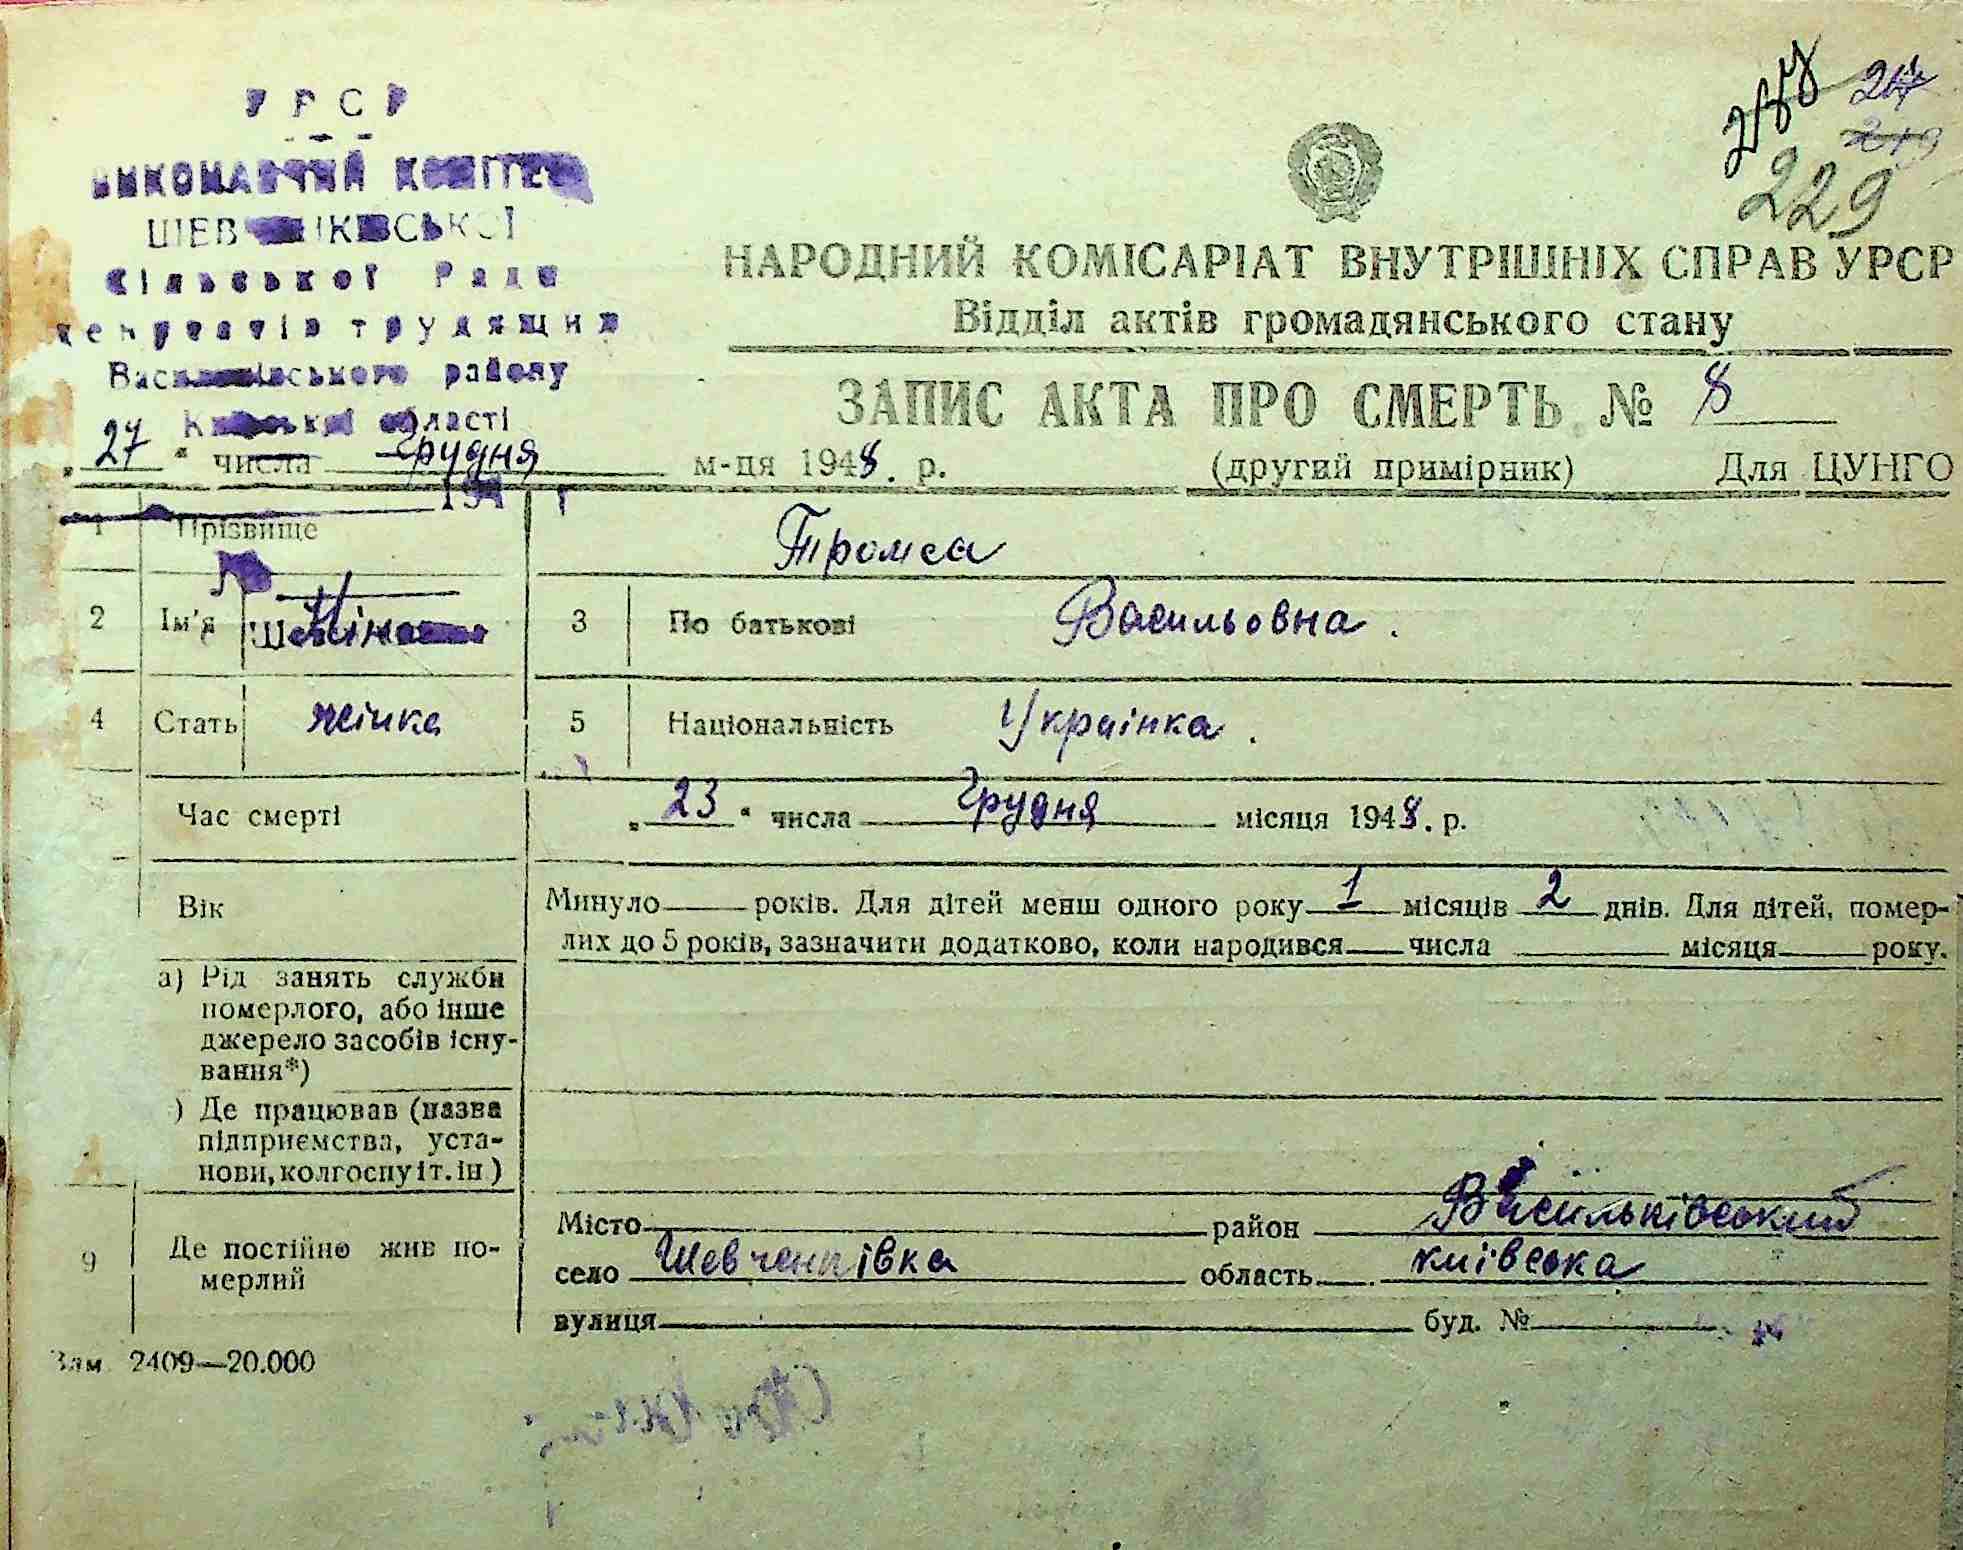 УРСР
ВИКОНАВЧИЙ КОМІТЕТ
ШЕВЧЕНКІВСЬКОЇ
Сільської Ради
депутатів трудящих
Васильківського району
Київської області
229
НАРОДНИЙ КОМІСАРІАТ ВНУТРІШНІХ СПРАВ УРСР
Відділ актів громадянського стану
ЗАПИС АКТА ПРО СМЕРТЬ № 8
„27“ числа Грудня м-ця 1948. р. (другий примірник) Для ЦУНГО
194 г
1 Прізвище Тромса
2 Ім'я Ніна 3 По батькові Васильовна.
4 Стать жінка 5 Національність Українка.
Час смерті „23“ числа Грудня місяця 1948. р.
Вік Минуло років. Для дітей менш одного року 1 місяців 2 днів. Для дітей, помер-
лих до 5 років, зазначити додатково, коли народився числа місяця року.
а) Рід занять служби
померлого, або інше
джерело засобів існу-
вання*)
) Де працював (назва
підприємства, уста-
нови, колгоспу і т. ін)
9 Де постійно жив по-
мерлий
Місто район Васильківський
село Шевченківка область Київська
вулиця буд. №
Зам 2409—20.000